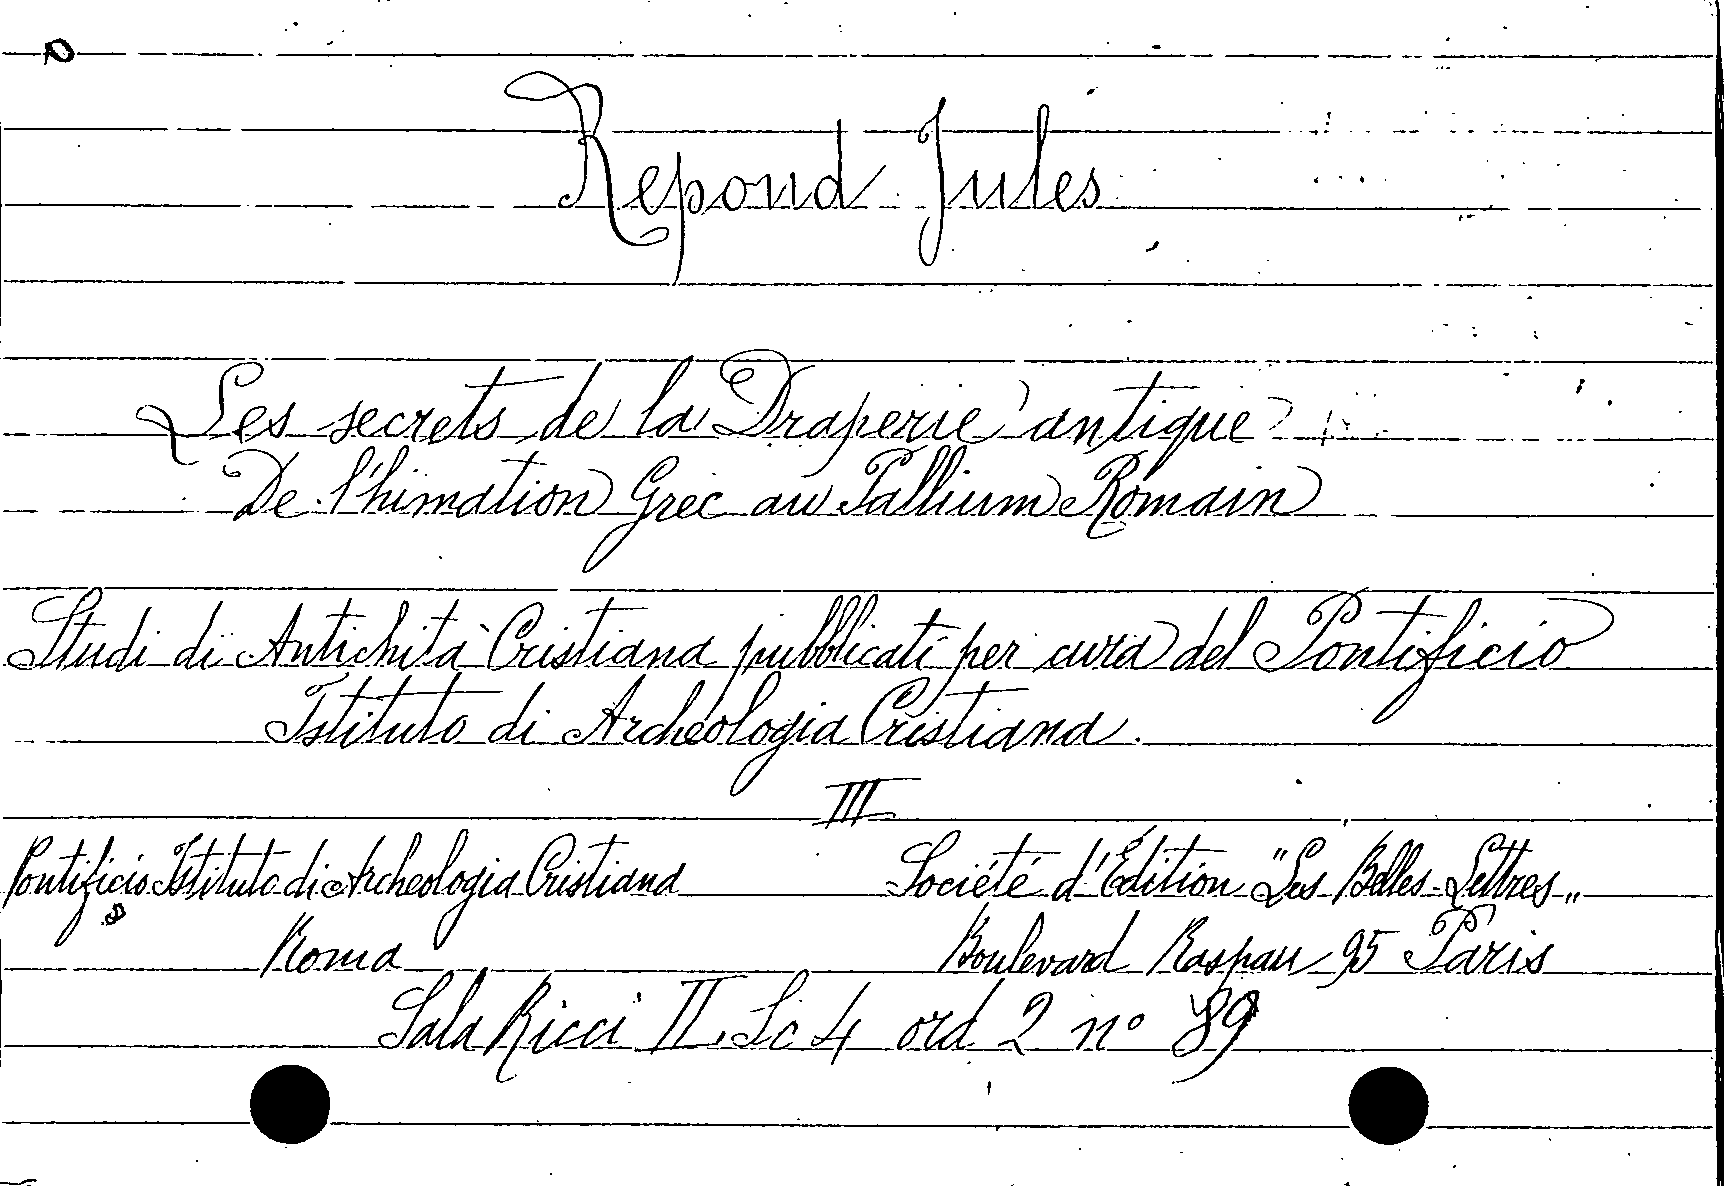 Repond Jules
Les secrets de la Draperie antique
De l'himation Grec au Pallium Romain
Studi di Antichità Cristiana pubblicati per cura del Pontificio
Istituto di Archeologia Cristiana.
III
Pontificio Istituto di Archeologia Cristiana Société d'Édition "Les Belles-Lettres„
Roma Boulevard Raspau 95 Paris
Sala Ricci II. Sc 4 ord 2 n° 89